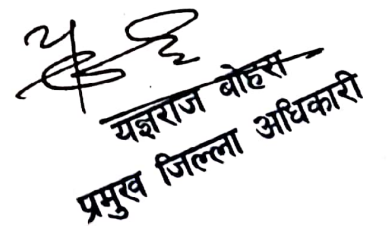 यज्ञराज बोहरा
प्रमुख जिल्ला अधिकारी